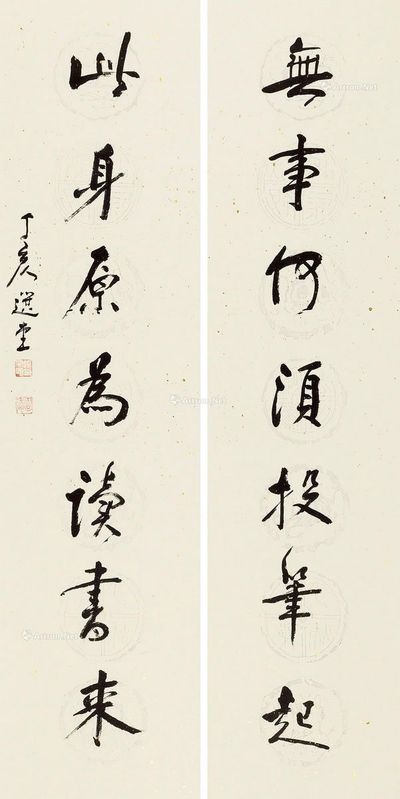 無事何須投筆起
此身原為讀書來
丁亥選堂
Artron.Net
Artron.Net
Artron.Net